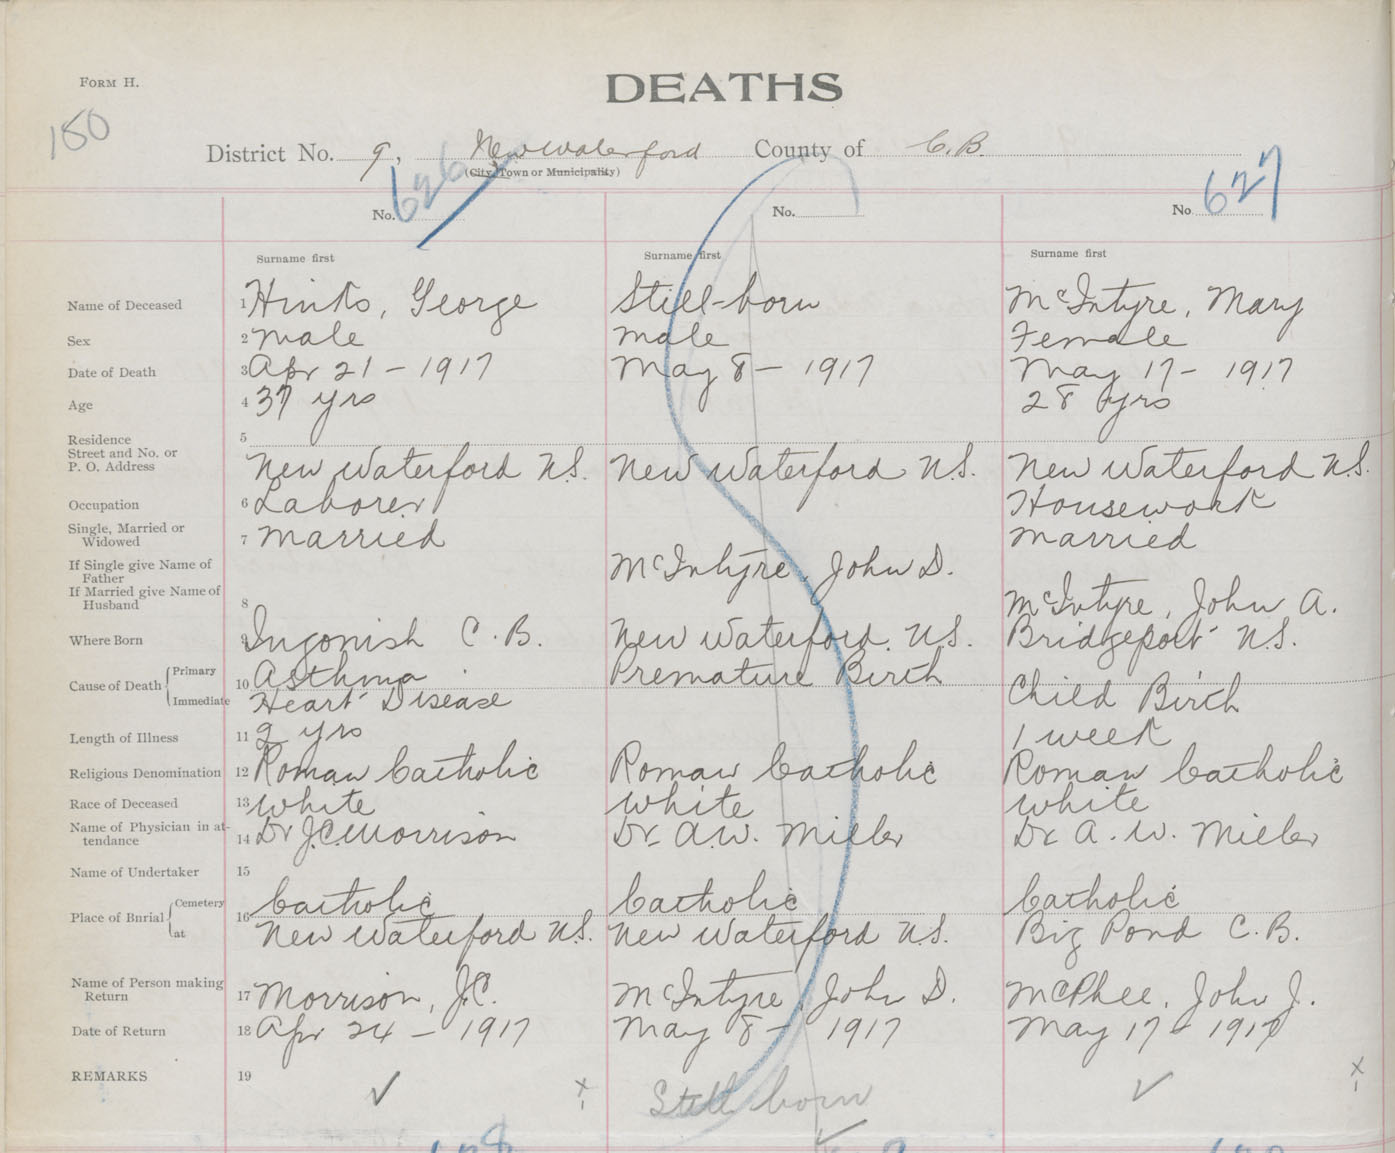 FORM H.
DEATHS
180
District No. 9, New Waterford County of C.B.
(City, Town or Municipality)
No. 626 No. No. 627
Surname first Surname first Surname first
Name of Deceased 1 Hinks, George Still-born McIntyre, Mary
Sex 2 male male Female
Date of Death 3 Apr 21 - 1917 May 8 - 1917 May 17 - 1917
Age 4 37 yrs 28 yrs
Residence 5
Street and No. or
P. O. Address New Waterford N.S. New Waterford N.S. New Waterford N.S.
Occupation 6 Laborer Housework
Single, Married or
Widowed 7 married married
If Single give Name of
Father McIntyre, John D.
If Married give Name of
Husband 8 McIntyre, John A.
Where Born 9 Ingonish C. B. New Waterford. N.S. Bridgeport N.S.
Cause of Death Primary 10 Asthma Premature Birth Child Birth
Immediate Heart Disease
Length of Illness 11 2 yrs 1 week
Religious Denomination 12 Roman Catholic Roman Catholic Roman Catholic
Race of Deceased 13 white white white
Name of Physician in at-
tendance 14 Dr J.C. Morrison Dr. A.W. Miller Dr A. W. Miller
Name of Undertaker 15
Place of Burial Cemetery 16 Catholic Catholic Catholic
at New Waterford N.S. New Waterford N.S. Big Pond C.B.
Name of Person making
Return 17 Morrison, J.C. McIntyre, John D. McPhee, John J.
Date of Return 18 Apr 24 - 1917 May 8 - 1917 May 17 - 1917
REMARKS 19 ✓ x Still born ✓ ✓ x
628